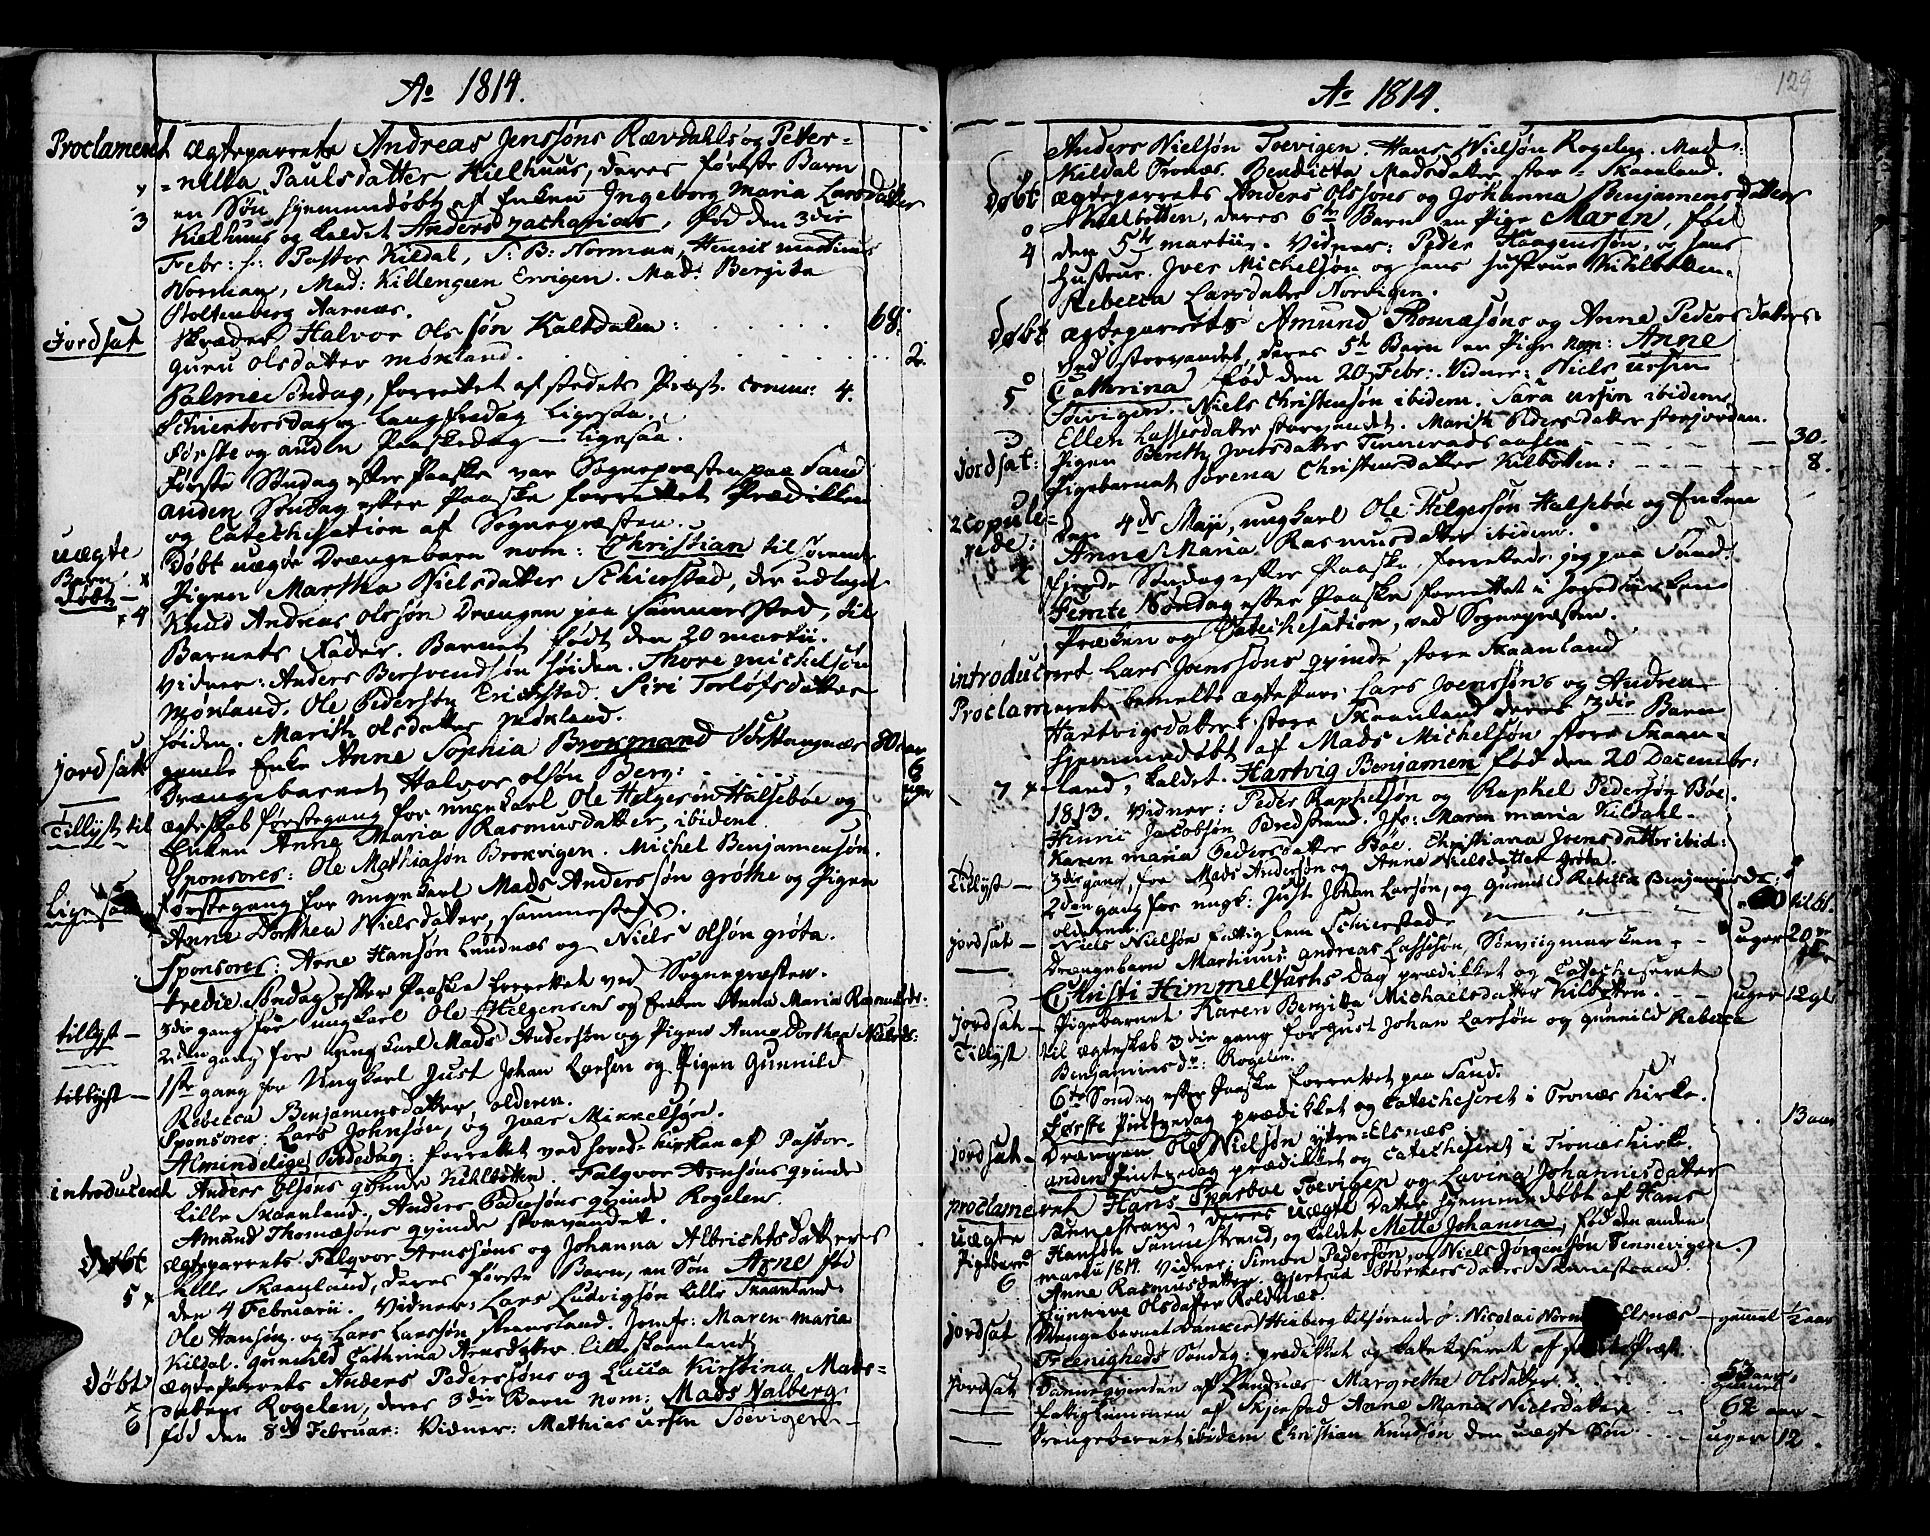 Ao 1814.
Proclameret Ægteparrets Andreas Jenssøns Rævdahls og Peter=
=nilla Paulsdatter Kielhuus, deres første Barn
en Søn hjemmedøbt af Enken Ingeborg Maria Larsdatter
3 Kielhuus og kaldet Anders Zacharias, Fød den 3die
Febr: f: Pastor Kildal, S: B: Norman, Henric Martinus
Norman, Mad: Killengreen Ervigen. Mad: Bergita
Stoltenberg Aarnæs.
Jordsat Skræder Halvor Olssøn Kaltdalen: 68.
Guru Olsdatter Mokland. 2.
Palme Søndag, forrettet af stedets Præst. comm: 4.
Schiertorsdag og Langfredag ligesaa.
Første og anden Paaskedag - ligesaa.
Første Søndag efter Paaske var Sognepræsten paa Sand
anden Søndag efter Paaske forrettet Prædikken
og Catechisation af Sognepræsten.
uægte Barn døbt Døbt uægte Drængebarn nom: Christian tilhørende
Pigen Martha Nielsdatter Schierstad, der udlagde
4 Knud Andreas Olssøn Drængen paa Sammested, til
Barnets Fader. Barnet født den 20 Martii.
Vidner: Anders Bersvendsøn Høiden. Thore Michelsøn
Mokland. Ole Pedersøn Erichstad. Siri Torlofsdatter
Høiden. Marith Olsdatter Mokland.
jordsat gamle Enke Anne Sophia Brokmand Stangnæs 80 aar
Drængebarnet Halvor Olsøn Berg: 6 uger
Tillyst til ægteskab første gang for ungekarl Ole Helgesøn Halsebøe og
Enken Anne Maria Rasmusdatter, ibidem.
Sponsores: Ole Mathiasøn Brokvigen. Michel Benjamensøn.
Ligesaa første gang for ungekarl Mads Anderssøn grøthe og Pigen
Anne Dorthea Nielsdatter, sammesteds.
Sponsores: Arne Hansøn Lundnæs og Niels Olsøn grøta.
Tredie Søndag efter Paaske forrettet ved Sognepræsten.
tillyst - 3die gang for ungkarl Ole Helgensen og Enken Anna Maria Rasmusd:
2den gang for ungkarl Mads Andersøn og Pigen Anne Dorthea Nielsd:
tillyst - 1ste gang for Ungkarl Just Johan Larsen og Pigen Gunnild
Rebecca Benjamensdatter, olderen.
Sponsores: Lars Johnsøn, og Iver Mikkelsøn.
Almindelige Bededag: forrettet ved hoved-kirken af Pastor.
introduceret Anders Olsøns qvinde Kihlbotten. Falqvor Arnsøns qvinde
Lille Skaanland, Anders Pedersøns qvinde Rogelen.
Amund Thomæsøns qvinde Storvandet.
Døbt Ægteparrets Falqvor Arnssøns og Johanna Albrichtsdatters
5 Lille Skaanland, deres første Barn, en Søn Arne fød
den 4 Februarii. Vidner: Lars Ludvigsøn Lille Skaanland
Ole Hansøn og Lars Larssøn Steensland. Jomfr: Maren Maria
Kildal. Gunnild Cathrina Arnsdatter Lilleskaanland
Døbt Ægteparrets Anders Pederssøns og Lucca Kirstina Mads=
datters Rogelen, deres 3die Barn nom: Mads Nalberg
6 fød den 8de Februar: Vidner: Mathias Ursin Toevigen -
Ao 1814.
129
Anders Nielsøn Toevigen. Hans Nielsøn Rogelen. Mad:
Kildal Tronæs. Benedicta Madsdatter store Skaanland.
Døbt Ægteparrets Anders Olssøns og Johanna Benjamensdatters
Kielbotten, deres 6te Barn en Pige Maren, fød
4 den 5te Martii. Vidner: Peder Haagenssøn, og hans
Hustrue. Iver Michelsøn og hans Hustrue Kihlbotten.
Rebecca Larsdatter Norvigen.
Døbt Ægteparrets Amund Thomæsøns og Anne Pedersdatters
ved Storvandet, deres 5te Barn en Pige nom: Anne
5 Cathrina, fød den 20 Febr: Vidner: Niels Ursin
Toevigen. Niels Christensøn ibidem. Sara Ursin ibidem
Ellen Lassesdatter Storvandet. Marith Pedersdatter Storjordan.
Jordsat: Pigen Bereth Iversdatter Tennevadsaasen - 30.
Pigebarnet Sørena Christensdatter Kilbotten: 8.
2 copulerede: den 4de Maji, ungkarl Ole Helgessøn Halsebøe og Enken
Anne Maria Rasmusdatter ibidem.
Fierde Søndag efter Paaske, forrettede jeg paa Sand.
Femte Søndag efter Paaske forrettet i Hovedkirken
Præken og Catechisation, ved Sognepræsten.
introduceret Lars Joenssøns qvinde store Skaanland
Proclameret bemelte ægtepars Lars Joenssøns og Andrea
Hartvigsdatters store Skaanland deres 3die Barn
hjemmedøbt af Mads Michelsøn store Skaan-
7 land, kaldet Hartvig Benjamen fød den 20 Decembr:
1813. Vidner: Peder Raphelsøn og Raphel Pedersøn Bøe.
Hinric Jacobsøn Bredstrand. Jfr: Maren Maria Kildahl.
Karen Maria Pedersdatter Bøe. Christiana Joensdatter ibid:
Tillyst - 3die gang, for Mads Andersøn og Anne Nielsdatter Grøta.
2den gang for ungk: Just Johan Larsøn, og Gunnild Rebecca Benjamensdr.
olderen.
jordsat - Niels Nielsøn Fattiglem Schierstad 60 til 61.
Drængebarn Martinus Andreas Lassesøn Toevigmarken - uger 20
Christi Himmelfarts Dag prædikket og Catecheseret
jordsat - Pigebarnet Karen Bergitta Michaelsdatter Kilbotten. uger 12 gl.
Tillyst til ægteskab 3die gang for Just Johan Larsøn og Gunnild Rebecca
Benjaminsdr: Rogelen.
6te Søndag efter Paaske forrettet paa Sand.
Første Pintzedag prædikket og Catecheseret i Tronæs Kirke.
jordsat - Drængen Ole Nielsøn ytre Elsnæs 13 aar
anden Pintzedag prædikket og Catecheseret i Tronæs Kirke.
proclameret Hans Sparboe Toevigen og Lavina Johannesdatter
uægte Pigebarn Sannestrand, deres uægte Datter hjemmedøbt af Hans
6 Hansøn Sannestrand, og kaldet Mette Johanna, fød den anden
Martii 1814. Vidner: Simon Pedersøn, og Niels Jørgensøn Tennevigen.
Anne Rasmusdatter. Giertrud Størkersdatter Sannestrand.
Hynnive Olsdatter Roldnæs.
jordsat Drengebarnet Danckert Hieberg tilhørende Hr: Nicolai Norman Elsnæs - gammel 1/2 aar
Treenigheds Søndag: prædikket og Catekiseret af stedets Præst.
jordsat Dannequinden af Sandnæs Margrethe Olsdatter 53 aar gammel
Fattiglemmen af Skjerstad Anne Maria Nielsdatter 62 aar -
Drengebarnet ibidem Christian Knudsøn den uægte Søn uger 12.